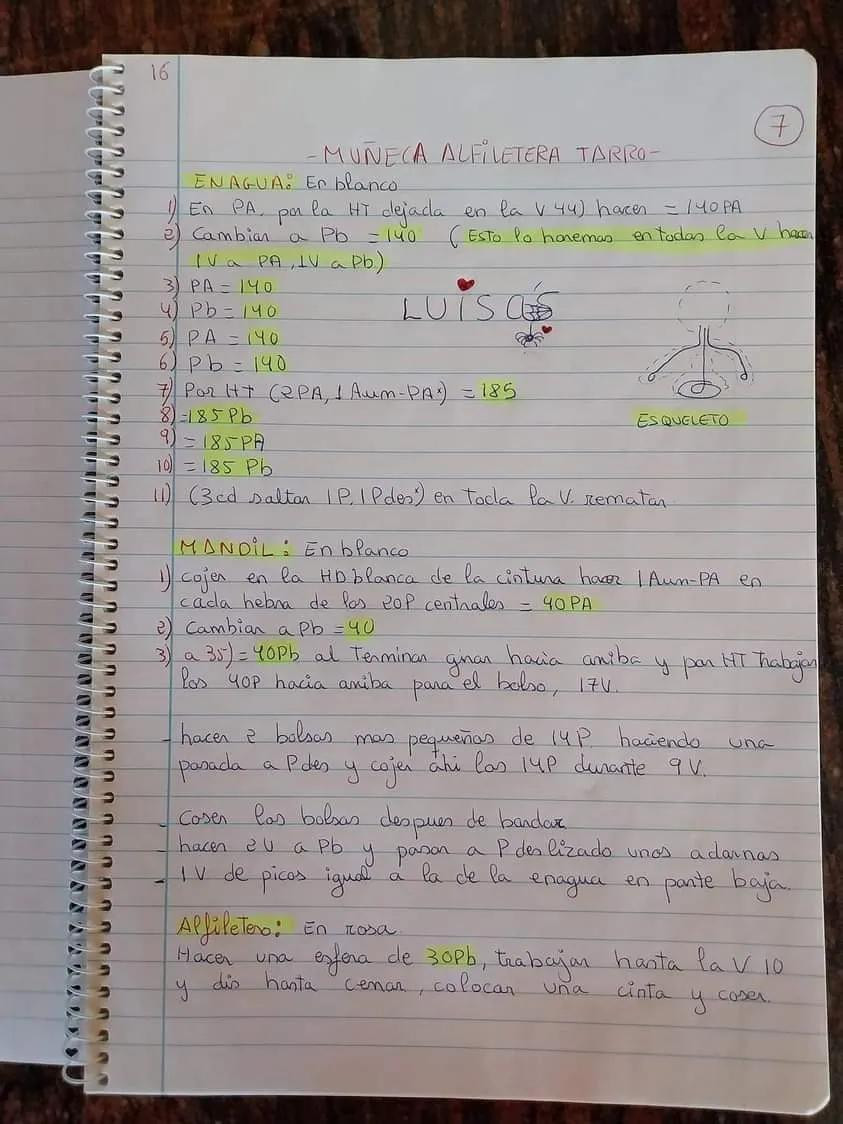 16
7
-MUÑECA ALFILETERA TARRO-
ENAGUA: En blanco
1) En PA, por la HT dejada en la V 44) hacer = 140PA
2) Cambiar a Pb = 140 (Esto lo haremos en todas la V hacer
1V a PA, 1V a Pb)
3) PA = 140
4) Pb = 140
5) PA = 140
6) Pb = 140
7) Por HT (2PA, 1 Aum-PA*) = 185
8) = 185 Pb
9) = 185 PA
10) = 185 Pb
11) (3cd saltar 1P, 1Pdes*) en toda la V. rematar
LUISCAS
ESQUELETO
MANDIL: En blanco
1) cojer en la HD blanca de la cintura hacer 1 Aum-PA en
cada hebra de los 20P centrales = 40PA
2) Cambiar a Pb = 40
3) a 35) = 40Pb al Terminar girar hacia arriba y por HT Trabajar
los 40P hacia arriba para el bolso, 17V.
- hacer 2 bolsas mas pequeñas de 14P. haciendo una
pasada a Pdes y cojer ahi los 14P durante 9V.
- Coser las bolsas despues de bordar
- hacer 2V a Pb y pasar a P deslizado unos adornas
- 1V de picos igual a la de la enagua en parte baja.
Alfiletero: En rosa
Hacer una esfera de 30Pb, trabajar hasta la V 10
y dis hasta cerrar, colocar una cinta y coser.